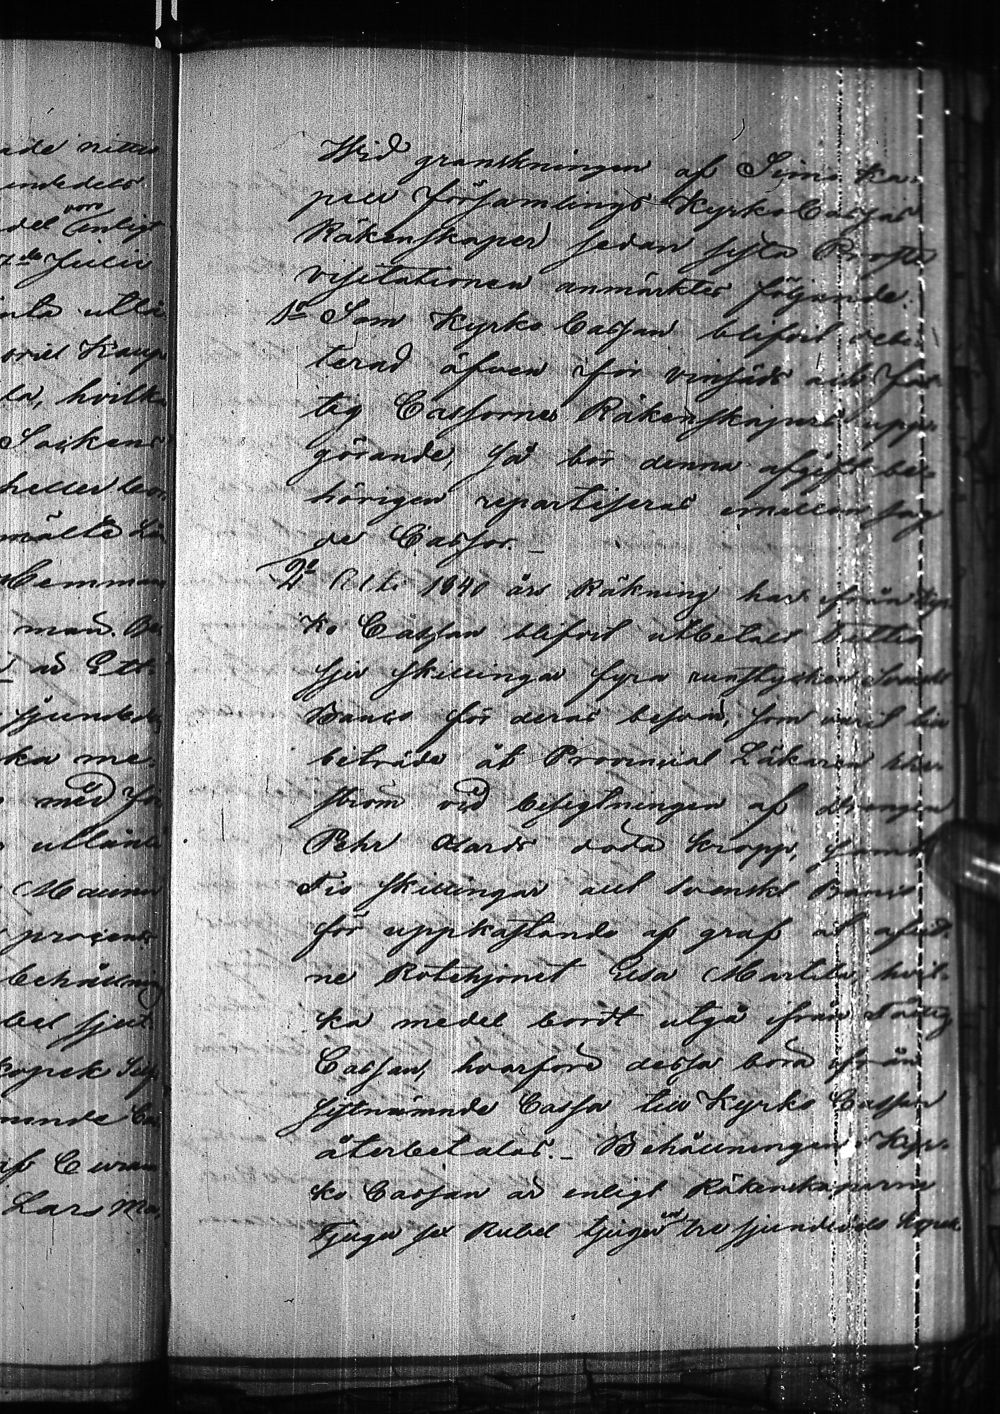 ade
endedels
del voro enligt
Julii
utlå
Kaup
la, hvilka
Sockens
heller bor
mälte
Hemman
man.
ad Ett
sjundedel
ka me-
med för
utlånt
procent
behållning
sjut
kopek
Lars Ma
Wid granskningen af Simo ka-
pell församlings Kyrko Cassas
Räkenskaper sedan sista Prosts
visitationen anmärktes följande.
1º Som Kyrko Cassan blifvit debi-
terad äfven för vinsäds och fat-
tig Cassornes Räkenskapers upp-
görande, så bör denna afgift be-
hörigen repartiseras emellan sag
de Cassor. _
2º Uti 1840 års Räkning har från Kyr-
ko Cassan blifvit utbetalt tretti
sju skillingar fyra runstycken Svenskt
Banco för deras besvär, som varit bi-
beträde åt Provincial Läkaren
ström vid besigtningen af drängen
Pehr döda kropp, samt
Tio skillingar all Svenskt Banco
för uppkastande af graf åt aflid-
ne Rotehjonet Lisa Martila, hvil-
ka medel bordt utgå från Fattig
Cassan, hvarföre dessa böra från
sistnämnde Cassa till Kyrko Cassan
återbetalas. _ Behållningen i Kyr-
ko Cassan är enligt Räkenskaperne
Tjugu sex Rubel tjugu och tre sjundedels Kopek